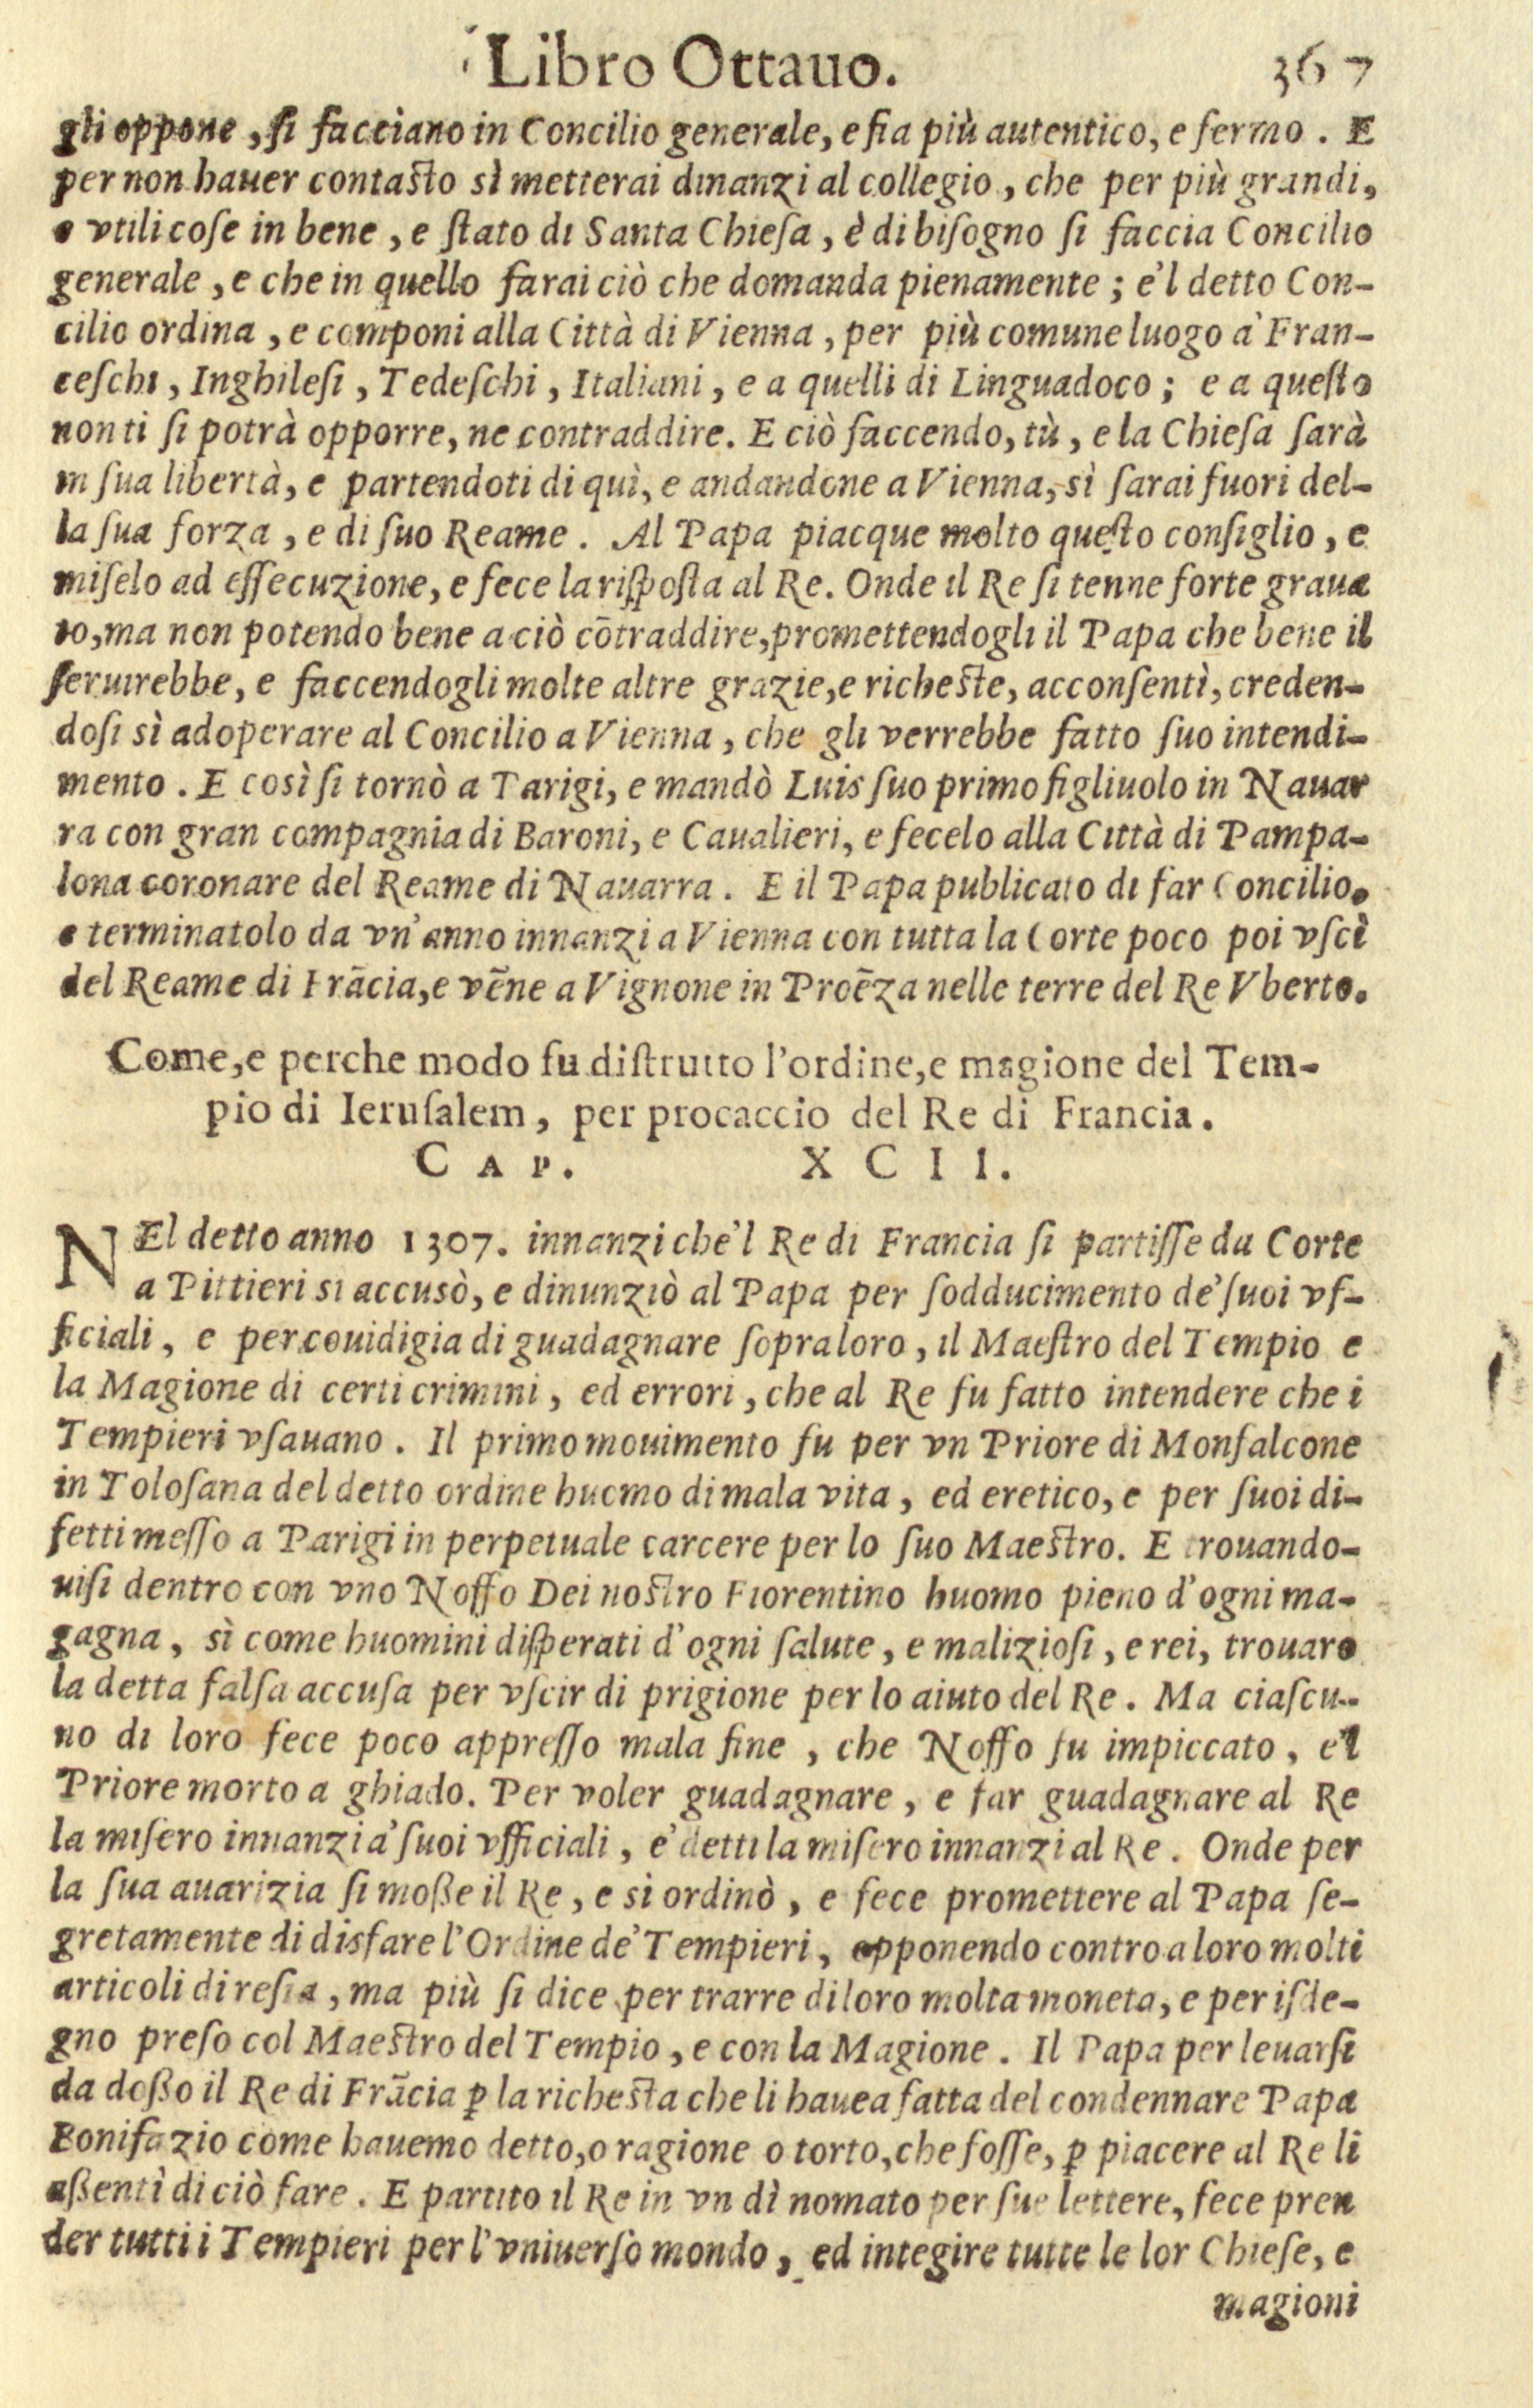 Libro Ottauo. 367
gli oppone, ſi facciano in Concilio generale, e fia più autentico, e fermo. E
per non hauer contaſto sì metterai dinanzi al collegio, che per più grandi,
e vtili coſe in bene, e ſtato di Santa Chieſa, è di biſogno ſi faccia Concilio
generale, e che in quello farai ciò che domanda pienamente; e'l detto Con-
cilio ordina, e componi alla Città di Vienna, per più comune luogo a' Fran-
ceſchi, Inghileſi, Tedeſchi, Italiani, e a quelli di Linguadoco; e a queſto
non ti ſi potrà opporre, ne contraddire. E ciò faccendo, tù, e la Chieſa ſarà
in ſua libertà, e partendoti di quì, e andandone a Vienna, sì ſarai fuori del-
la ſua forza, e di ſuo Reame. Al Papa piacque molto queſto conſiglio, e
miſelo ad eſſecuzione, e fece la riſpoſta al Re. Onde il Re ſi tenne forte graua
to, ma non potendo bene a ciò cōtraddire, promettendogli il Papa che bene il
ſeruirebbe, e faccendogli molte altre grazie, e richeſte, acconſentì, creden-
doſi sì adoperare al Concilio a Vienna, che gli verrebbe fatto ſuo intendi-
mento. E così ſi tornò a Parigi, e mandò Luis ſuo primo figliuolo in Nauar
ra con gran compagnia di Baroni, e Caualieri, e fecelo alla Città di Pampa-
lona coronare del Reame di Nauarra. E il Papa publicato di far Concilio,
e terminatolo da vn'anno innanzi a Vienna con tutta la Corte poco poi vſcì
del Reame di Frācia, e vēne a Vignone in Proēza nelle terre del Re Vberto.
Come, e perche modo fu diſtrutto l'ordine, e magione del Tem-
pio di Ieruſalem, per procaccio del Re di Francia.
CAP. XCII.
NEl detto anno 1307. innanzi che'l Re di Francia ſi partiſſe da Corte
a Pittieri si accusò, e dinunziò al Papa per ſodducimento de'ſuoi vf-
ficiali, e per couidigia di guadagnare ſopra loro, il Maeſtro del Tempio e
la Magione di certi crimini, ed errori, che al Re fu fatto intendere che i
Tempieri vſauano. Il primo mouimento fu per vn Priore di Monfalcone
in Toloſana del detto ordine huomo di mala vita, ed eretico, e per ſuoi di-
fetti meſſo a Parigi in perpetuale carcere per lo ſuo Maeſtro. E trouando-
uiſi dentro con vno Noffo Dei noſtro Fiorentino huomo pieno d'ogni ma-
gagna, sì come huomini diſperati d'ogni ſalute, e malizioſi, e rei, trouaro
la detta falſa accuſa per vſcir di prigione per lo aiuto del Re. Ma ciaſcu-
no di loro fece poco appreſſo mala fine, che Noffo fu impiccato, e'l
Priore morto a ghiado. Per voler guadagnare, e far guadagnare al Re
la miſero innanzi a'ſuoi vfficiali, e'detti la miſero innanzi al Re. Onde per
la ſua auarizia ſi moße il Re, e si ordinò, e fece promettere al Papa ſe-
gretamente di disfare l'Ordine de'Tempieri, opponendo contro a loro molti
articoli di reſia, ma più ſi dice per trarre di loro molta moneta, e per iſde-
gno preſo col Maeſtro del Tempio, e con la Magione. Il Papa per leuarſi
da doßo il Re di Frācia ꝑ la richeſta che li hauea fatta del condennare Papa
Bonifazio come hauemo detto, o ragione o torto, che foſſe, ꝑ piacere al Re li
aßentì di ciò fare. E partito il Re in vn dì nomato per ſue lettere, fece pren
der tutti i Tempieri per l'vniuerſo mondo, ed integire tutte le lor Chieſe, e
magioni